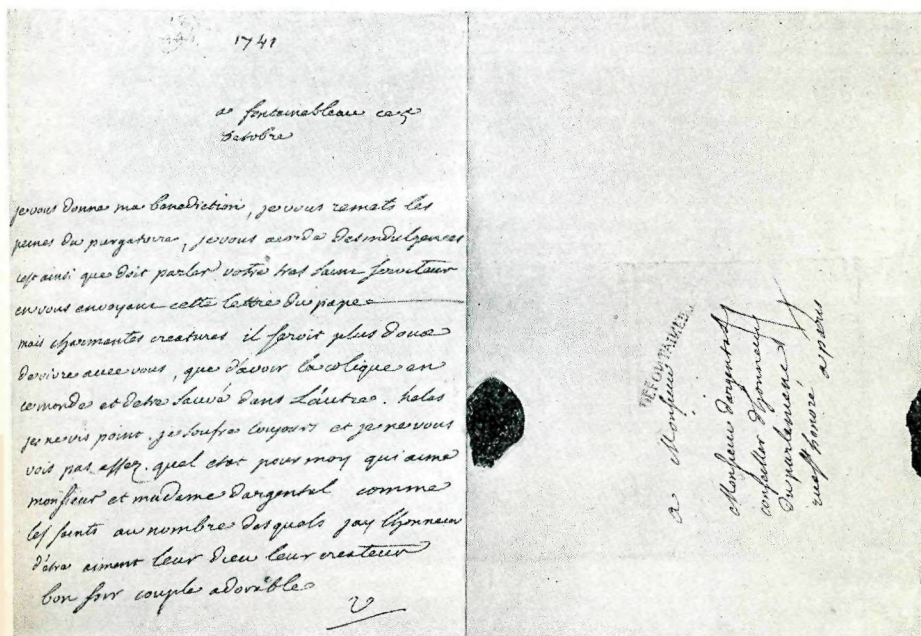 1741
a fontainebleau ce 5
octobre
je vous donne ma benediction, je vous remets les
peines du purgatoire, je vous acorde des indulgences
cest ainsi que doit parler votre tres saint serviteur
en vous envoyant cette lettre du pape
mais charmantes creatures il seroit plus doux
de vivre avec vous, que d'avoir la colique en
ce monde et detre sauvé dans L'autre. helas
je ne vis point. je soufre toujours et je ne vous
vois pas assez. quel etat pour moy qui aime
monsieur et madame dargental comme
les saints au nombre desquels jay lhonneur
d'etre aiment leur dieu leur createur
bon soir couple adorable
V
a Monsieur
Monsieur dargental
conseiller d'honneur
du parlement
rue st honoré a paris